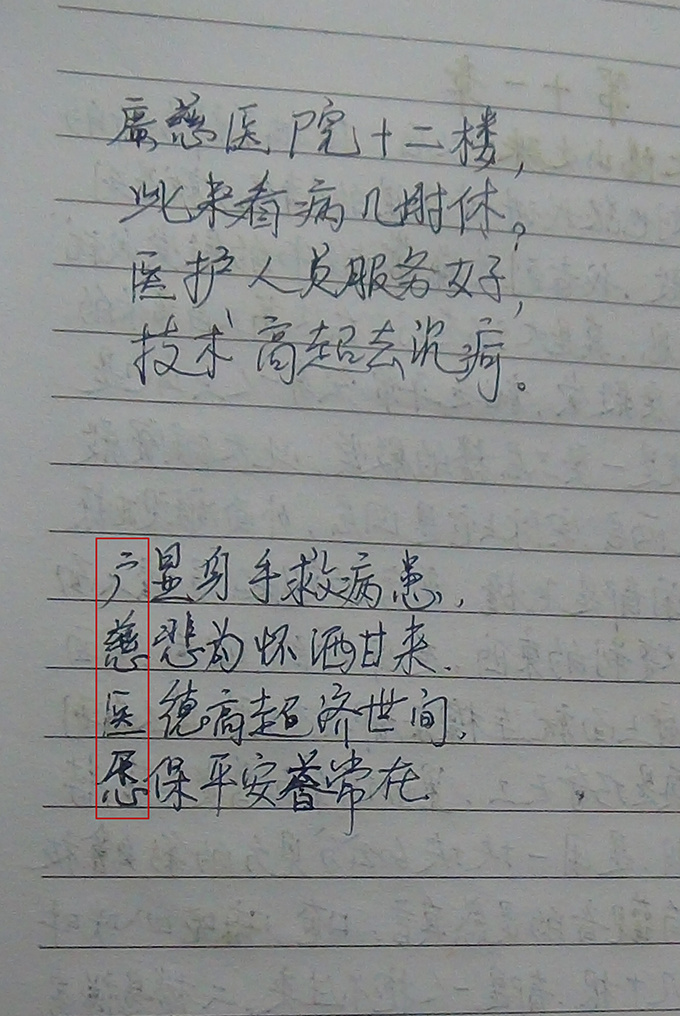 廣慈医院十二楼,
此来看病几时休。
医护人员服务好,
技术高超去沉疴。
广显身手救病患,
慈悲为怀洒甘来.
医德高超济世间,
保平安常在